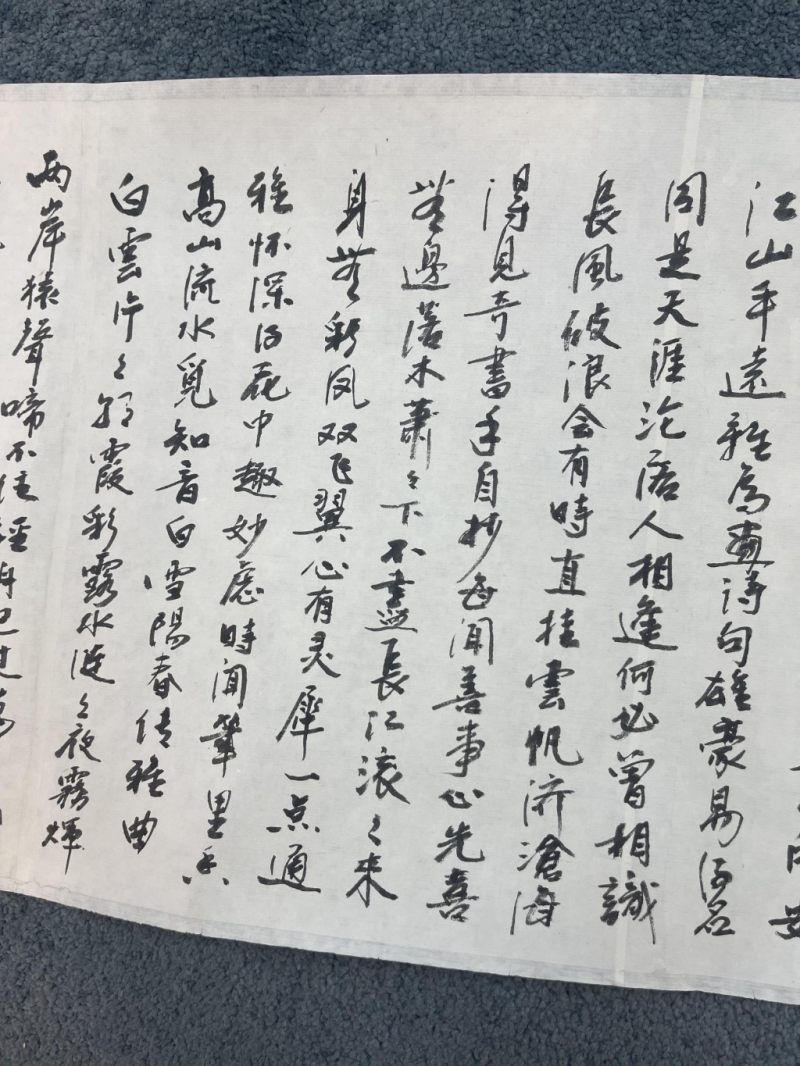 江山平遠難為畫詩句雄豪易得名
同是天涯沦落人相逢何必曾相識
長風破浪会有時直挂雲帆济滄海
得見奇書手自抄每聞善事心先喜
無邊落木蕭々下不盡長江滚々来
身無彩凤双飞翼心有灵犀一点通
雅怀深得花中趣妙慮時聞筆里香
高山流水覓知音白雪陽春传雅曲
白雲片々朝霞彩露水漣々夜霧輝
两岸猿聲啼不住輕舟已过萬